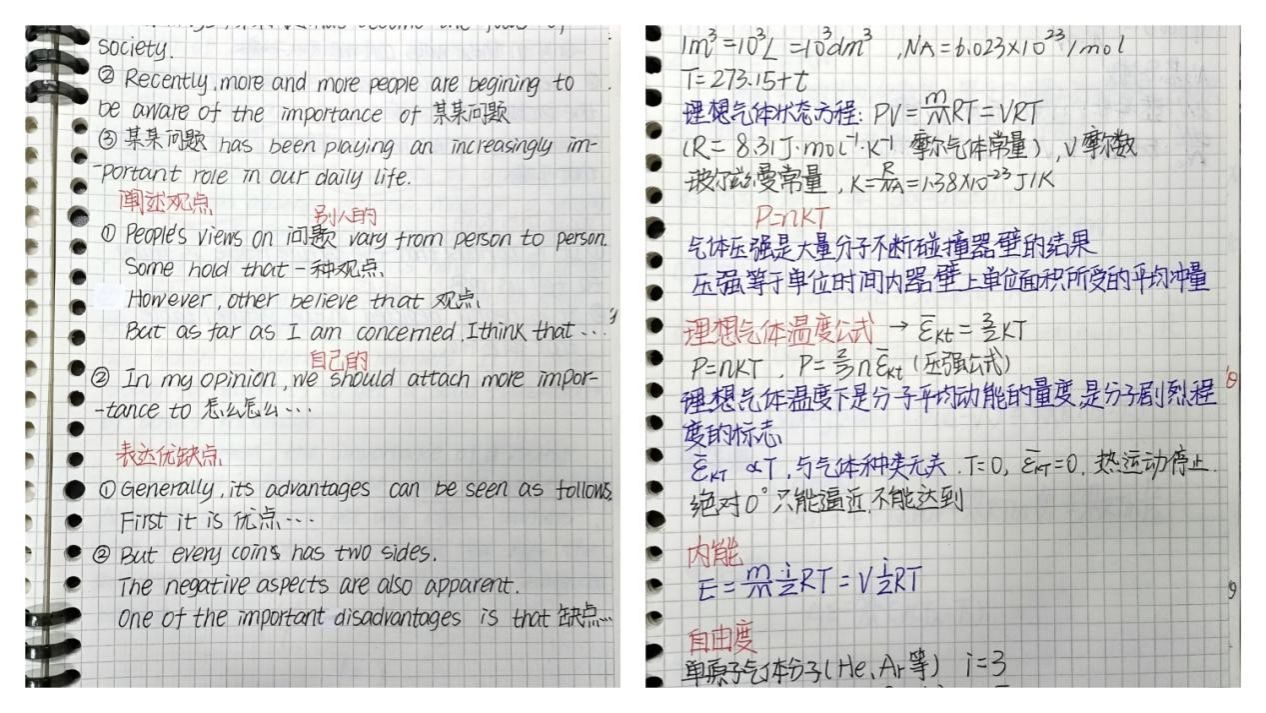 society.
② Recently, more and more people are begining to
be aware of the importance of 某某问题
③ 某某问题 has been playing an increasingly im-
-portant role in our daily life.
阐述观点
别人的
① People's views on 问题 vary from person to person.
Some hold that 一种观点、
However, other believe that 观点、
But as far as I am concerned, I think that …
自己的
② In my opinion, we should attach more impor-
-tance to 怎么怎么…
表达优缺点
① Generally, its advantages can be seen as follows.
First it is 优点…
② But every coins has two sides.
The negative aspects are also apparent.
One of the important disadvantages is that 缺点…
1m³=10³L=10³dm³ , NA=6.023×10²³/mol
T=273.15+t
理想气体状态方程: PV=m/M RT=νRT
(R=8.31J·mol⁻¹·K⁻¹ 摩尔气体常量), ν摩尔数
玻尔兹曼常量, K=R/NA=1.38×10⁻²³J/K
P=nKT
气体压强是大量分子不断碰撞器壁的结果
压强等于单位时间内器壁上单位面积所受的平均冲量
理想气体温度公式 → ε̄kt=3/2KT
P=nKT , P=2/3nε̄kt (压强公式)
理想气体温度下是分子平均动能的量度,是分子剧烈程
度的标志、
ε̄KT ∝T,与气体种类无关. T=0, ε̄KT=0, 热运动停止.
绝对0°只能逼近,不能达到
内能
E=m/M i/2RT=ν i/2RT
自由度
单原子气体分子(He、Ar等) i=3